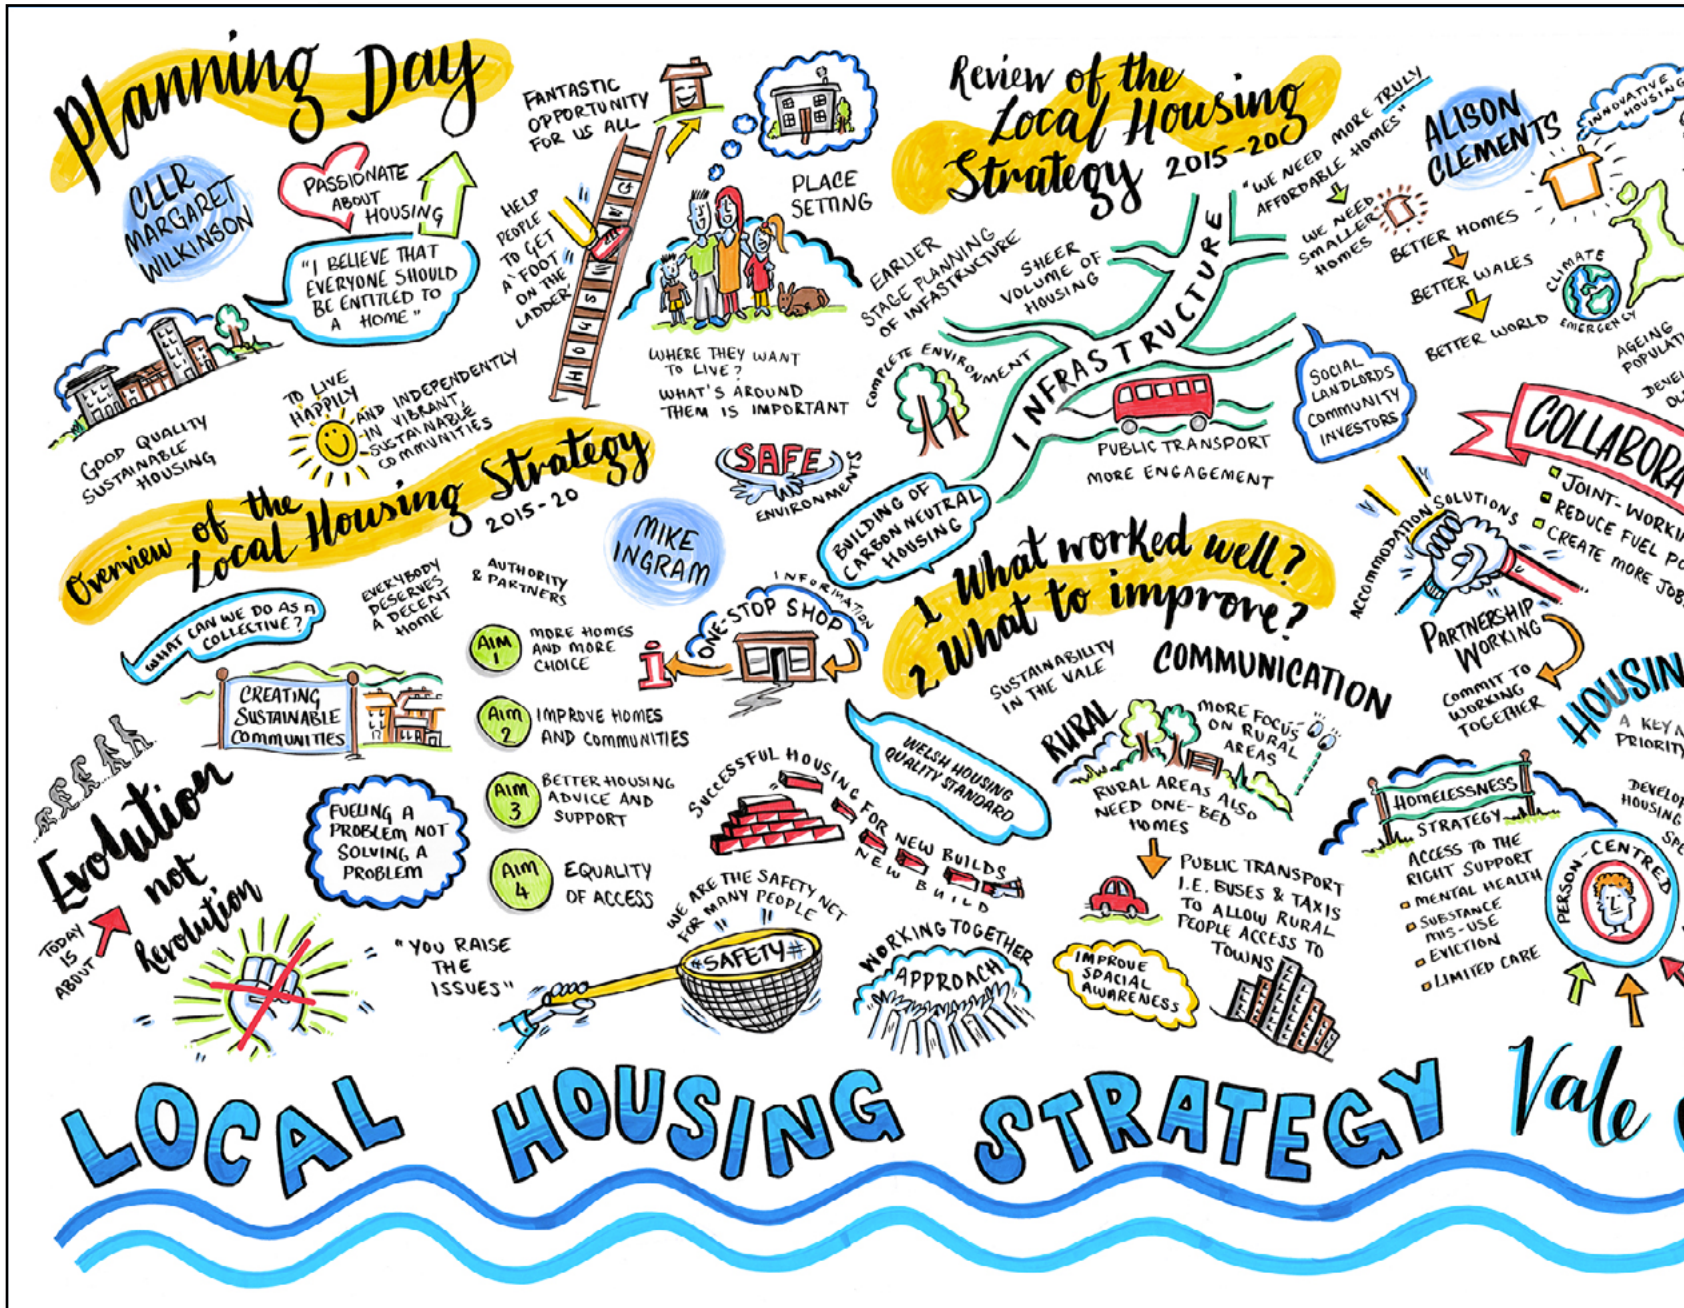 Planning Day
CLLR
MARGARET
WILKINSON
PASSIONATE
ABOUT
HOUSING
"I BELIEVE THAT
EVERYONE SHOULD
BE ENTITLED TO
A HOME"
GOOD QUALITY
SUSTAINABLE
HOUSING
TO LIVE
HAPPILY
AND INDEPENDENTLY
IN VIBRANT,
SUSTAINABLE
COMMUNITIES
FANTASTIC
OPPORTUNITY
FOR US ALL
HELP
PEOPLE
TO GET
A 'FOOT
ON THE
LADDER'
PLACE
SETTING
WHERE THEY WANT
TO LIVE?
WHAT'S AROUND
THEM IS IMPORTANT
SAFE
ENVIRONMENTS
Overview of the
Local Housing Strategy
2015-20
MIKE
INGRAM
WHAT CAN WE DO AS A
COLLECTIVE?
EVERYBODY
DESERVES
A DECENT
HOME
AUTHORITY
& PARTNERS
CREATING
SUSTAINABLE
COMMUNITIES
AIM
1
MORE HOMES
AND MORE
CHOICE
AIM
2
IMPROVE HOMES
AND COMMUNITIES
AIM
3
BETTER HOUSING
ADVICE AND
SUPPORT
AIM
4
EQUALITY
OF ACCESS
INFORMATION
ONE-STOP SHOP
i
Evolution
not
Revolution
TODAY
IS
ABOUT
FUELING A
PROBLEM NOT
SOLVING A
PROBLEM
"YOU RAISE
THE
ISSUES"
SUCCESSFUL HOUSING FOR NEW BUILDS
NEW BUILD
WE ARE THE SAFETY NET
FOR MANY PEOPLE
#SAFETY#
WORKING TOGETHER
APPROACH
Review of the
Local Housing
Strategy 2015-20
EARLIER
STAGE PLANNING
OF INFASTRUCTURE
SHEER
VOLUME OF
HOUSING
COMPLETE ENVIRONMENT
INFRASTRUCTURE
PUBLIC TRANSPORT
MORE ENGAGEMENT
BUILDING OF
CARBON NEUTRAL
HOUSING
"WE NEED MORE TRULY
AFFORDABLE HOMES"
WE NEED
SMALLER
HOMES
ALISON
CLEMENTS
INNOVATIVE
HOUSING
BETTER HOMES
BETTER WALES
BETTER WORLD
CLIMATE
EMERGENCY
AGEING
SOCIAL
LANDLORDS
COMMUNITY
INVESTORS
1. What worked well?
2. What to improve?
SUSTAINABILITY
IN THE VALE
COMMUNICATION
WELSH HOUSING
QUALITY STANDARD
RURAL
MORE FOCUS
ON RURAL
AREAS
RURAL AREAS ALSO
NEED ONE-BED
HOMES
PUBLIC TRANSPORT
I.E. BUSES & TAXIS
TO ALLOW RURAL
PEOPLE ACCESS TO
TOWNS
IMPROVE
SPACIAL
AWARENESS
COLLABORA
JOINT-WORKI
REDUCE FUEL PO
CREATE MORE JOBS
ACCOMMODATION SOLUTIONS
PARTNERSHIP
WORKING
COMMIT TO
WORKING
TOGETHER
HOUSIN
A KEY
PRIORITY
HOMELESSNESS
STRATEGY
ACCESS TO THE
RIGHT SUPPORT
MENTAL HEALTH
SUBSTANCE
MIS-USE
EVICTION
LIMITED CARE
HOUSING
PERSON-CENTRED
LOCAL HOUSING STRATEGY Vale